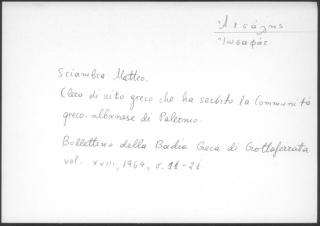 Ἀτσάλης
Ἰωσαφάς
Sciambra Matteo.
Clero di rito greco che ha servito la Comunità
greco-albanese di Palermo.
Bollettino della Badia Greca di Grottaferrata
vol. XVIII, 1964, σ. 11-21